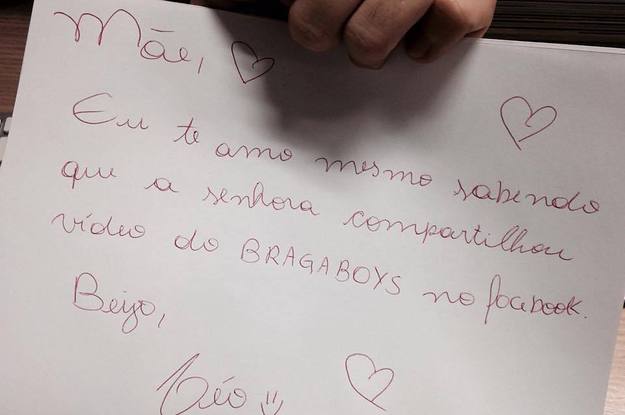 Mãe,
Eu te amo mesmo sabendo
que a senhora compartilhou
vídeo do BRAGABOYS no facebook.
Beijo,
Léo =)